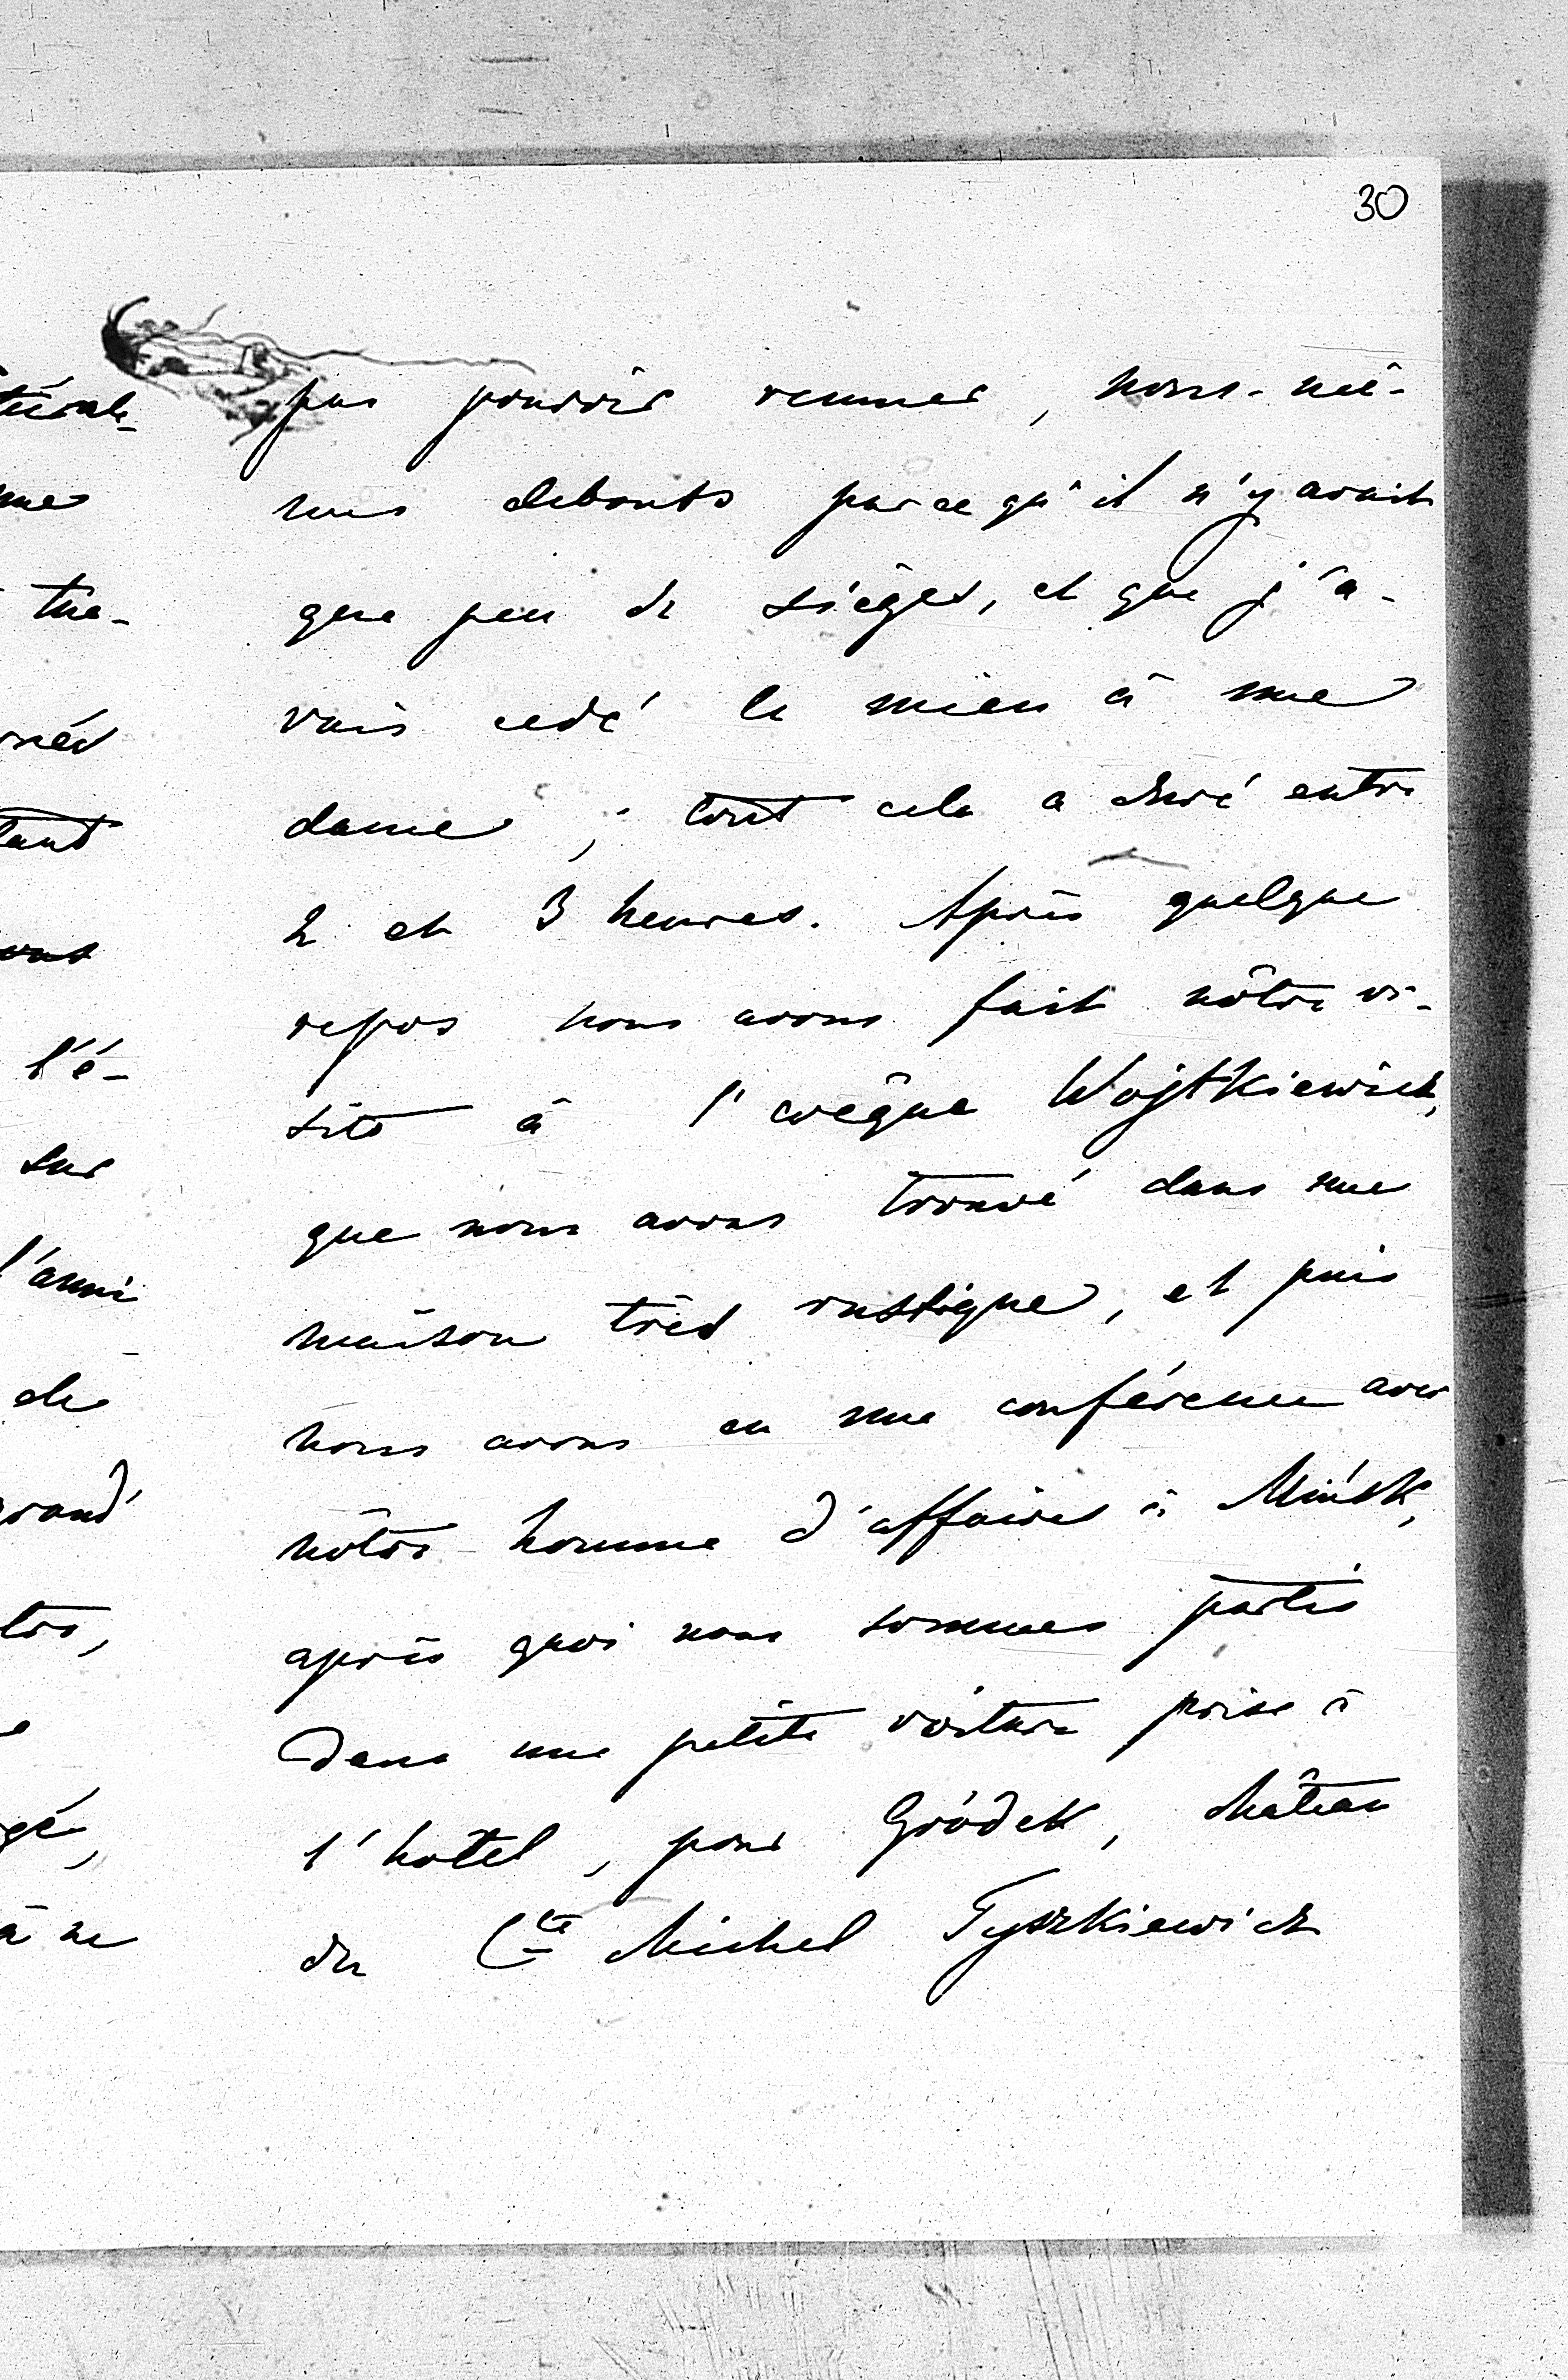 30
pas pouvoir remuer, nous-mê-
mes debouts parce qu'il n'y avait
que peu de sièges, et que j'a-
vais cedé le mien à une
dame; tout cela a duré entre
2 et 3 heures. Après quelque
repos nous avons fait nôtre vi-
site à l'evêque Wojtkiewicz,
que nous avons trouvé dans une
maison très rustique, et puis
nous avons eu une conférence avec
nôtre homme d'affaires à Minsk,
après quoi nous sommes partis
dans une petite voiture prise à
l'hotel, pour Gródek, château
du Cte Michel Tyszkiewicz
me
tant
l'é-
sur
l'ami
de
à ne